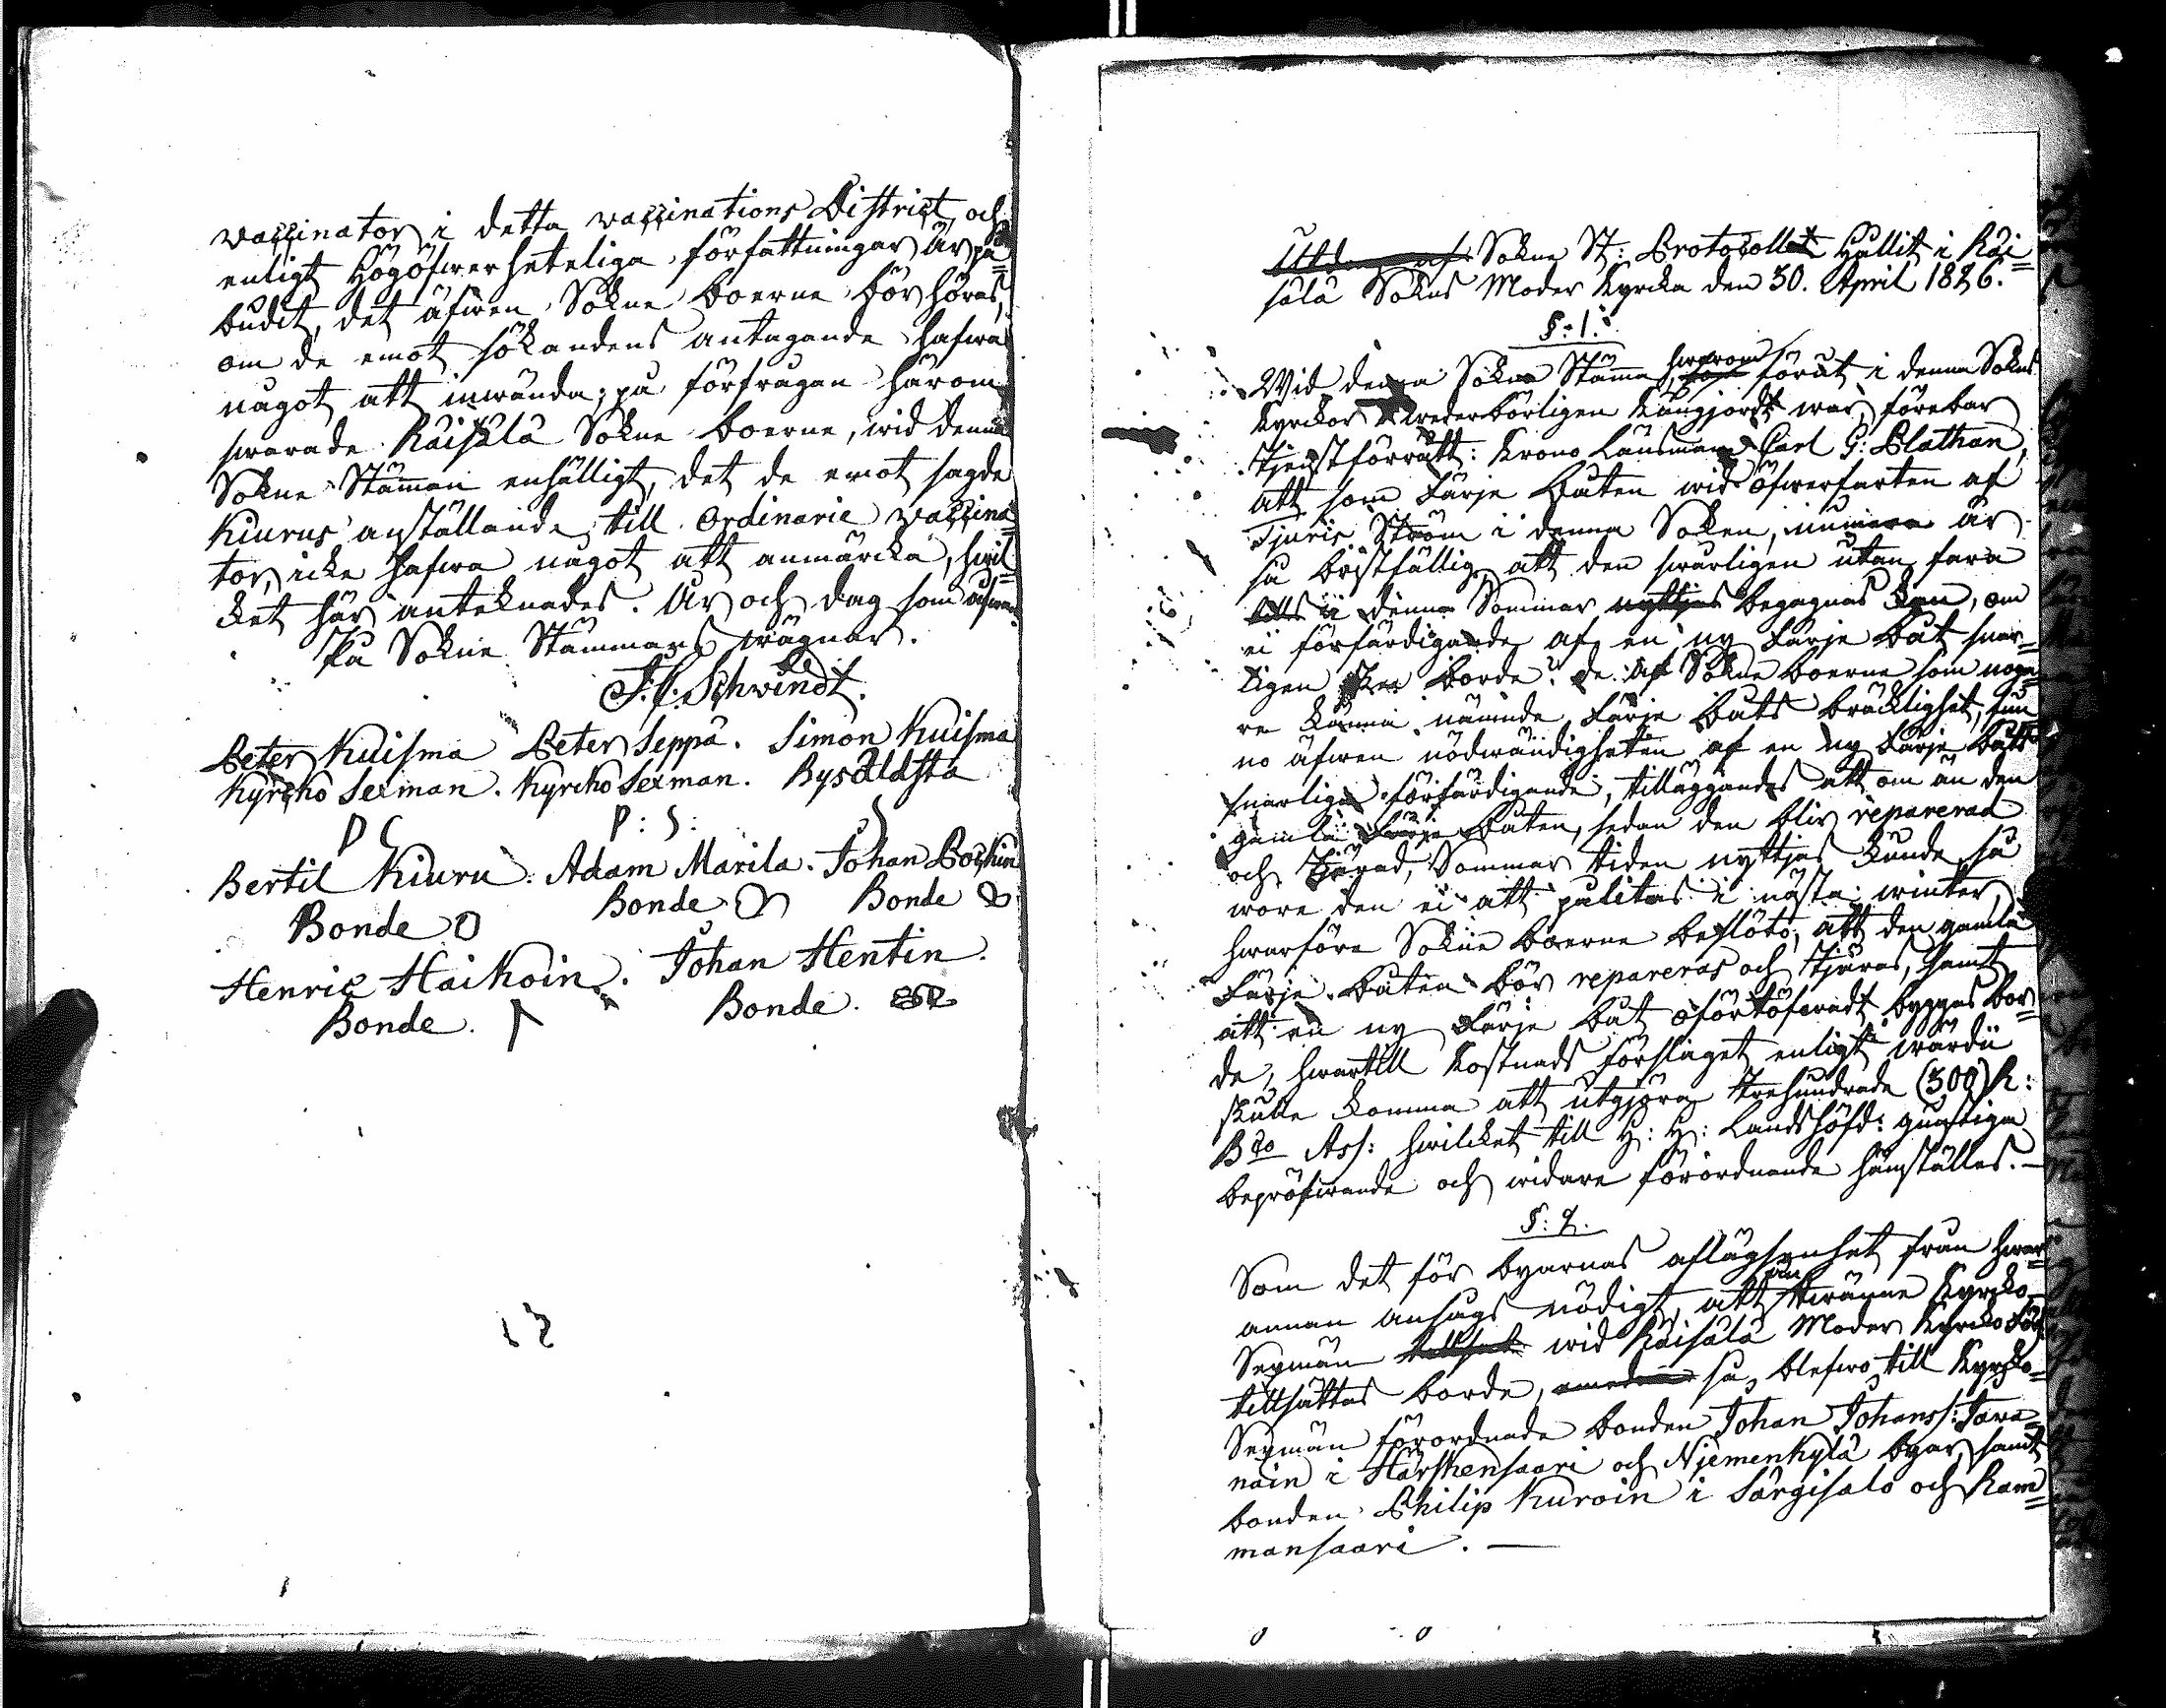 vaccinator i detta vaccinations District, och
enligt Högöfwerheteliga författningar är på=
budit, det äfwen Sokne boerne bör höras,
om de emot sökandens antagande hafwa
något att inwända; på förfrågan härom
swarade Räisälä Sokne boerne, wid denna
Sokne Stämman enhälligt, det de emot sagde
Kiurus anställande till Ordinarie vaccina
tor, icke hafwa något att anmärcka, hwil=
cket här anteknades. År och dag som ofwan.
På Sokne Stämmans wägnar.
Schwindt.
Peter Kuisma Peter Seppä. Simon Kuisma
Kyrcko Sexman. Kyrcko Sexman. Bysåldsta
P: S:
Bertil Kiuru. Adam Marila. Johan Poikin
Bonde Bonde Bonde
Henric Haikoin. Johan Hentin.
Bonde. Bonde.
Sokne St: Protocollet Hållit i Räi=
sälä Sokns Moder Kyrcka den 30. April 1826.
§: 1.
Wid denna Sokne Stämma, hwarom förut i denna Sokns
Kyrckor wederbörligen kungjordt war, förebar
Tjenstförrätt: Krono Länsmann Carl G: Plathan,
att som Färje båten wid öfwerfarten af
Tjuris Ström i denna Soken, numera är
så bristfällig, att den swårligen utan fara
i denna Sommar nyttjas begagnas kan, om
ei förfärdigande af en ny Färje båt snar=
ligen ske borde? de af Sokne boerne som noga=
re känna nämnde Färje båts bräcklighet, fun
no äfwen nödwändigheten af en ny Färje båts
snarliga förfärdigande, tilläggandes att om än den
gamla Färje båten, sedan den bliv reparerad
och tjärad, Sommar tiden nyttjas kunde, så
wore den ei att pålitas i nästa winter,
hwarföre Sokne boerne beslöto, att den gamla
Färje båten bör repareras och tjäras, samt
att en ny Färje båt oförtöfwadt byggas bor=
de, hwartill kostnads förslaget enligt wärdi
skulle komma att utgjöra trehundrade (300) R:
Bco Ass: hwilcket till H: H: Landshöfd: gunstiga
bepröfwande och widare förordnande hemställes. —
§: 2.
Som det för byarnas aflägsenhet från hwar=
annan ansågs nödigt, att än twänne Kyrcko
Sexmän wid Räisälä Moder Kyrcko För
tillsättas borde, så blefwo till Kyrcko=
Sexmän förordnade bonden Johan Johanss: Tawa=
nain i Härskensaari och Njemenkylä byar, samt
bonden Philip Kuroin i Särgisalo och Ham=
mansaari. —